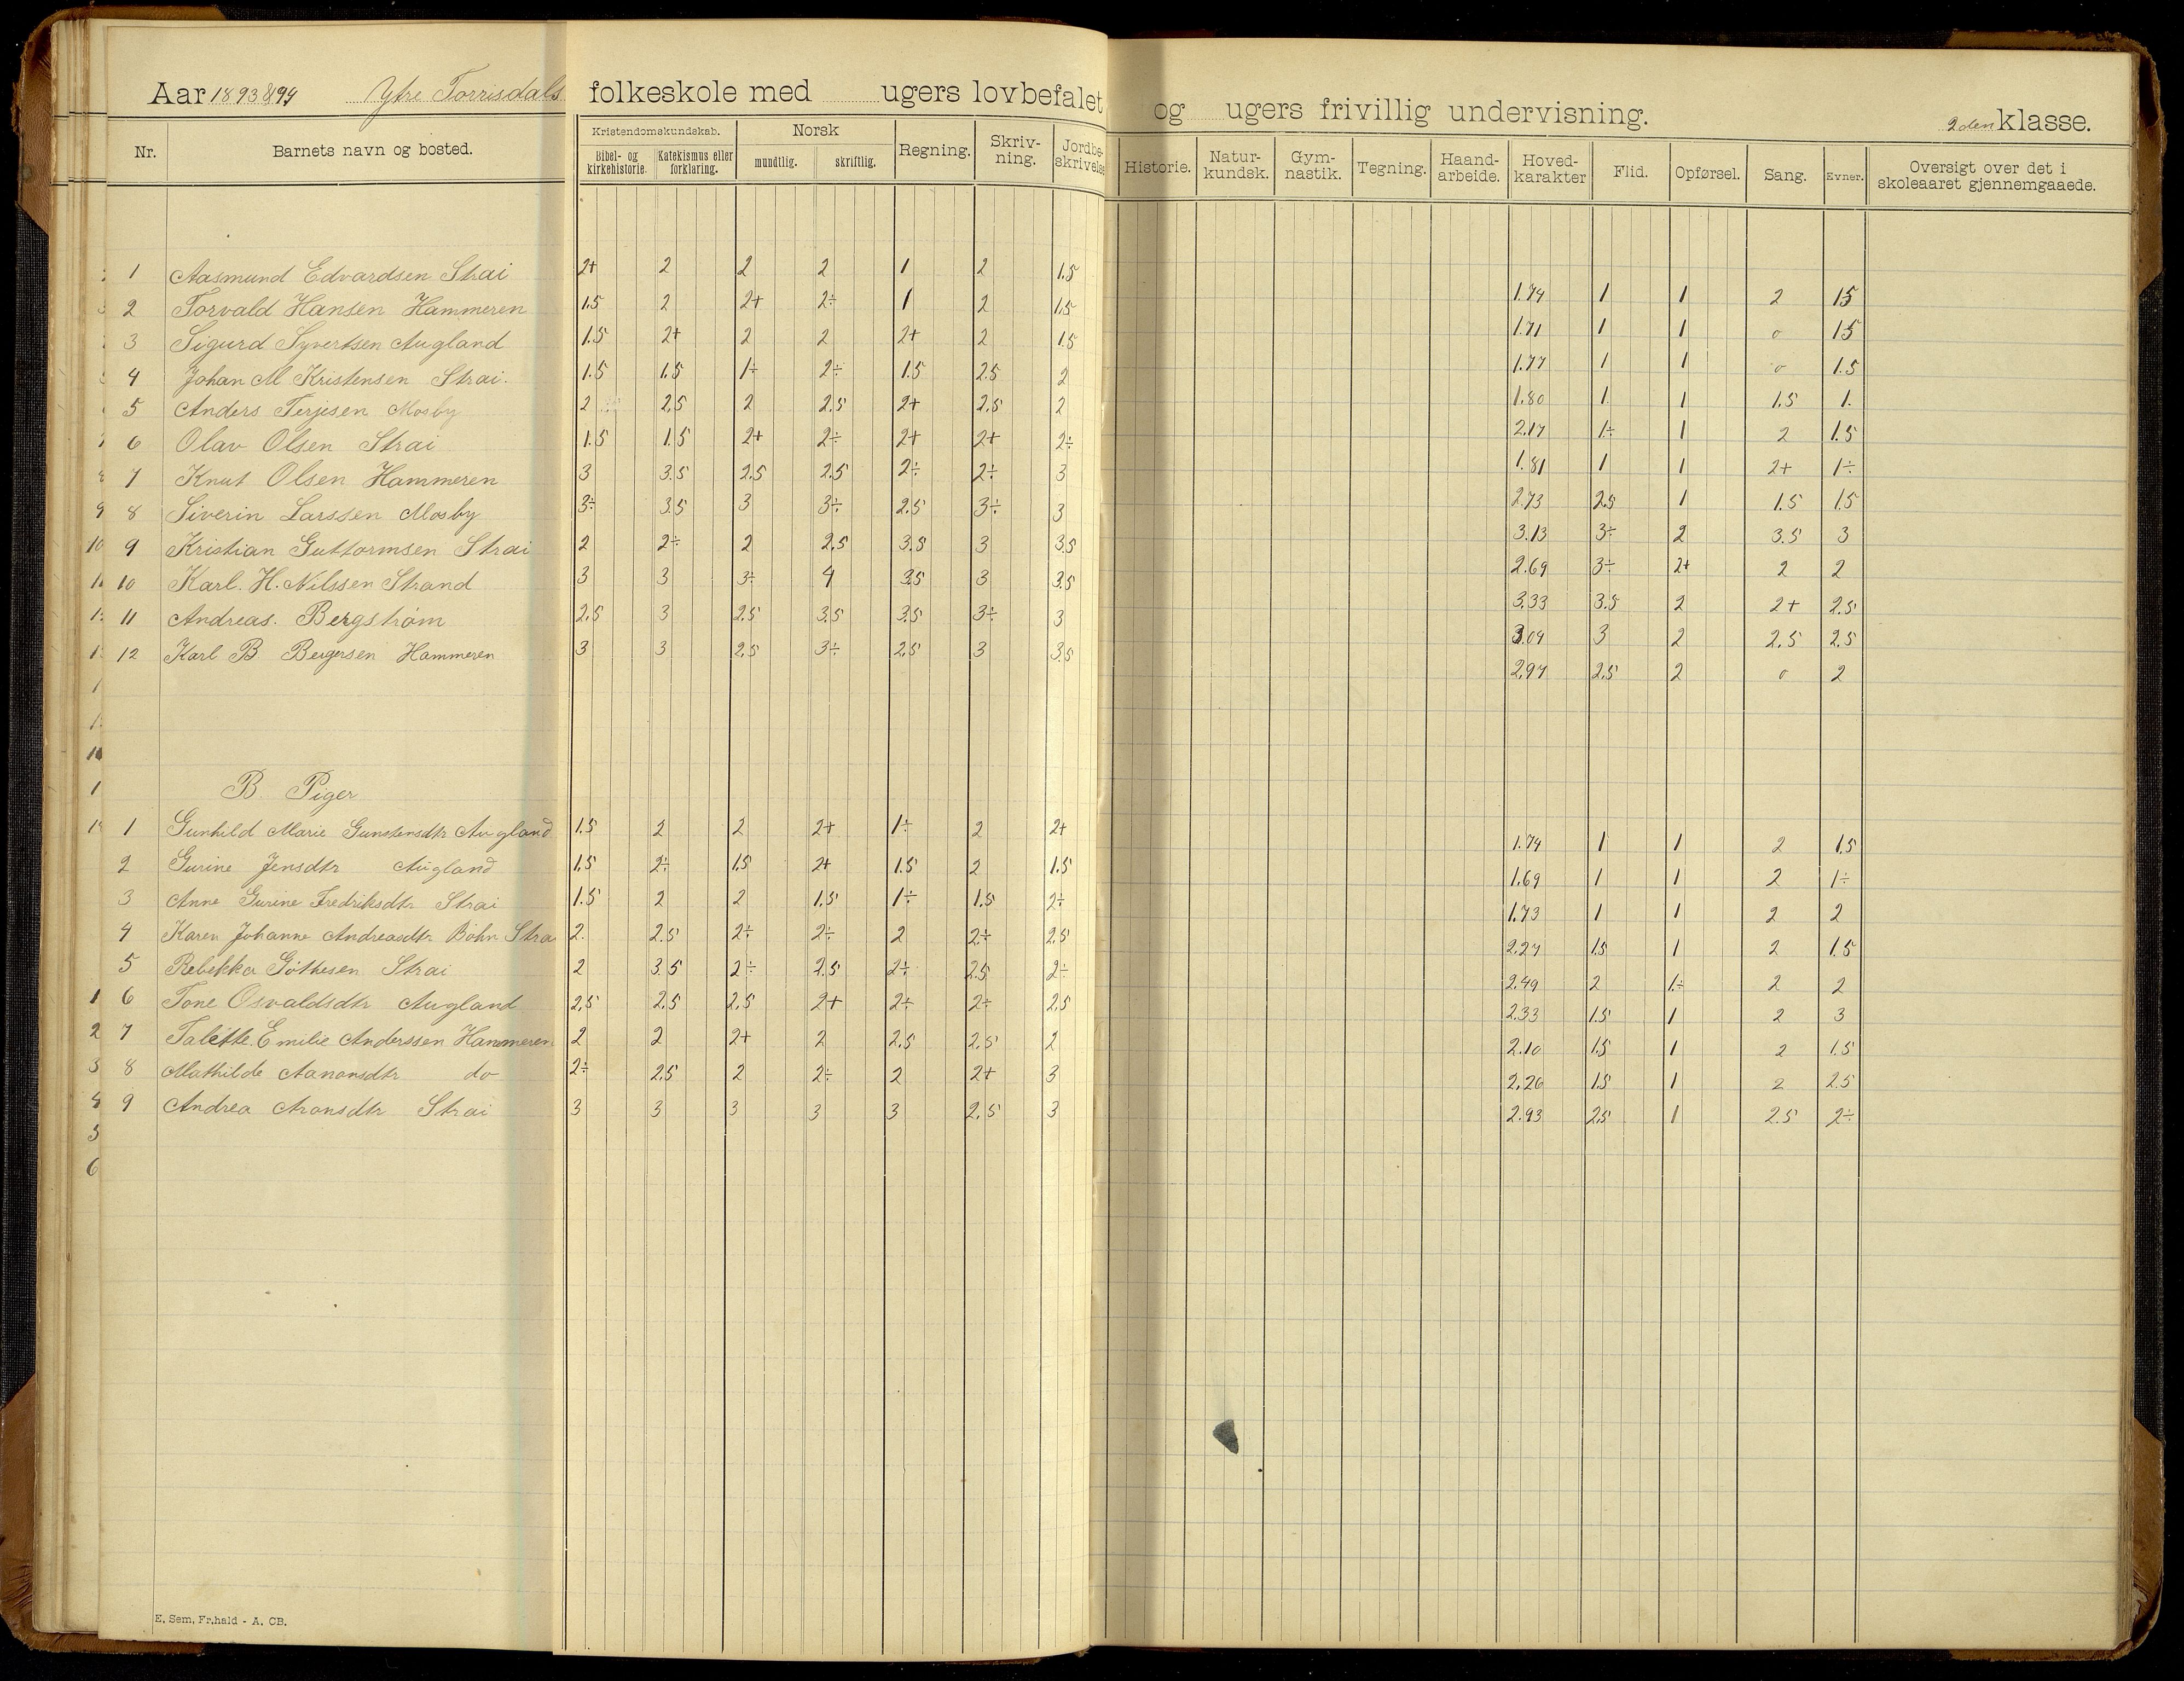 Aar 1893&94 Ytre Torrisdals folkeskole med ugers lovbefalet og ugers frivillig undervisning. 2den klasse.
Nr. Barnets navn og bosted. Kristendomskundskab. Bibel- og kirkehistorie. Katekismus eller forklaring. Norsk mundtlig. skriftlig. Regning. Skriv-ning. Jordbe-skrivelse Historie. Natur-kundsk. Gym-nastik. Tegning. Haand-arbeide. Hoved-karakter Flid. Opførsel. Sang. Evner. Oversigt over det i skoleaaret gjennemgaaede.
1 Aasmund Edvardsen Strai 2+ 2 2 2 1 2 1.5 1.74 1 1 2 15
2 Torvald Hansen Hammeren 1.5 2 2+ 2÷ 1 2 1.5 1.71 1 1 o 15
3 Sigurd Syvertsen Augland 1.5 2+ 2 2 2+ 2 1.5 1.77 1 1 o 1.5
4 Johan M Kristensen Strai. 1.5 1.5 1÷ 2÷ 1.5 2.5 2 1.80 1 1 1.5 1.
5 Anders Terjesen Mosby 2 2.5 2 2.5 2+ 2.5 2 2.17 1÷ 1 2 1.5
6 Olav Olsen Strai 1.5 1.5 2+ 2÷ 2+ 2+ 2÷ 1.81 1 1 2+ 1÷
7 Knut Olsen Hammeren 3 3.5 2.5 2.5 2÷ 2÷ 3 2.73 2.5 1 1.5 1.5
8 Siverin Larssen Mosby 3÷ 3.5 3 3÷ 2.5 3÷ 3 3.13 3÷ 2 3.5 3
9 Kristian Guttormsen Strai 2 2÷ 2 2.5 3.5 3 3.5 2.69 3÷ 2+ 2 2
10 Karl. H. Nilssen Strand 3 3 3÷ 4 3.5 3 3.5 3.33 3.5 2 2+ 2.5
11 Andreas. Bergstrøm 2.5 3 2.5 3.5 3.5 3÷ 3 3.09 3 2 2.5 2.5
12 Karl B Bergersen Hammeren 3 3 2.5 3÷ 2.5 3 3.5 2.97 2.5 2 o 2
B Piger
1 Gunhild Marie Gunstensdtr Augland 1.5 2 2 2+ 1÷ 2 2+ 1.74 1 1 2 1.5
2 Gurine Jensdtr Augland 1.5 2÷ 1.5 2+ 1.5 2 1.5 1.69 1 1 2 1÷
3 Anne Gurine Fredriksdtr Strai 1.5 2 2 1.5 1÷ 1.5 2÷ 1.73 1 1 2 2
4 Karen Johanne Andreasdtr Bohn Stra 2. 2.5 2÷ 2÷ 2 2÷ 2.5 2.27 1.5 1 2 1.5
5 Rebekka Göthesen Strai 2 3.5 2÷ 2.5 2÷ 2.5 2÷ 2.49 2 1÷ 2 2
6 Tone Osvaldsdtr Augland 2.5 2.5 2.5 2+ 2÷ 2÷ 2.5 2.33 1.5 1 2 3
7 Talette Emilie Anderssen Hammeren 2 2 2+ 2 2.5 2.5 2 2.10 1.5 1 2 1.5
8 Mathilde Aanonsdtr do 2÷ 2.5 2 2÷ 2 2+ 3 2.26 1.5 1 2 2.5
9 Andrea Aronsdtr Strai 3 3 3 3 3 2.5 3 2.93 2.5 1 2.5 2÷
E. Sem, Fr.hald - A. CB.